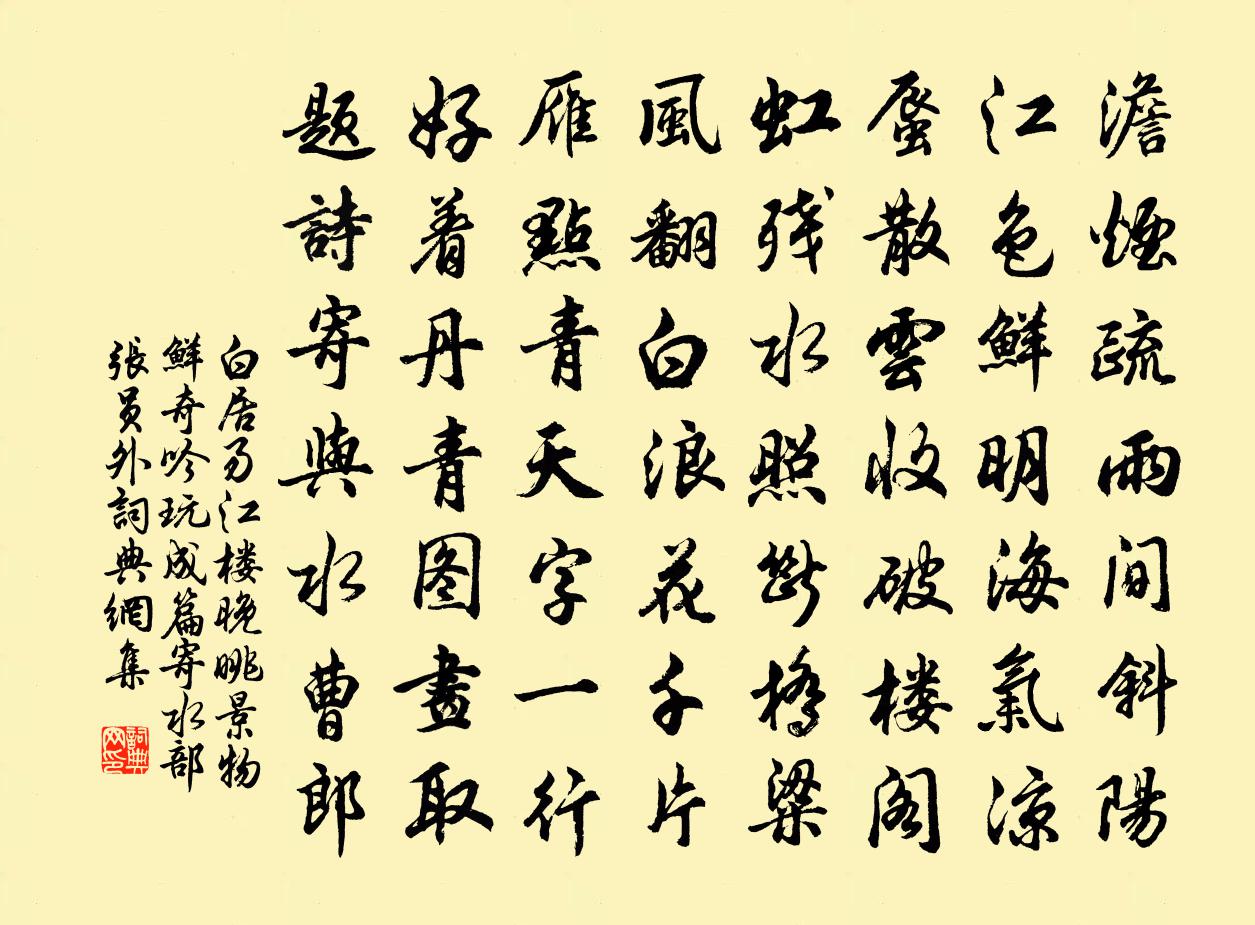 澹煙疏雨間斜陽
江色鮮明海氣涼
蜃散雲收破楼阁
虹残水照斷橋梁
風翻白浪花千片
雁點青天字一行
好着丹青图畫取
题詩寄與水曹郎
白居易江楼晚眺景物
鮮奇吟玩成篇寄水部
張员外詞典網集
詞典网印